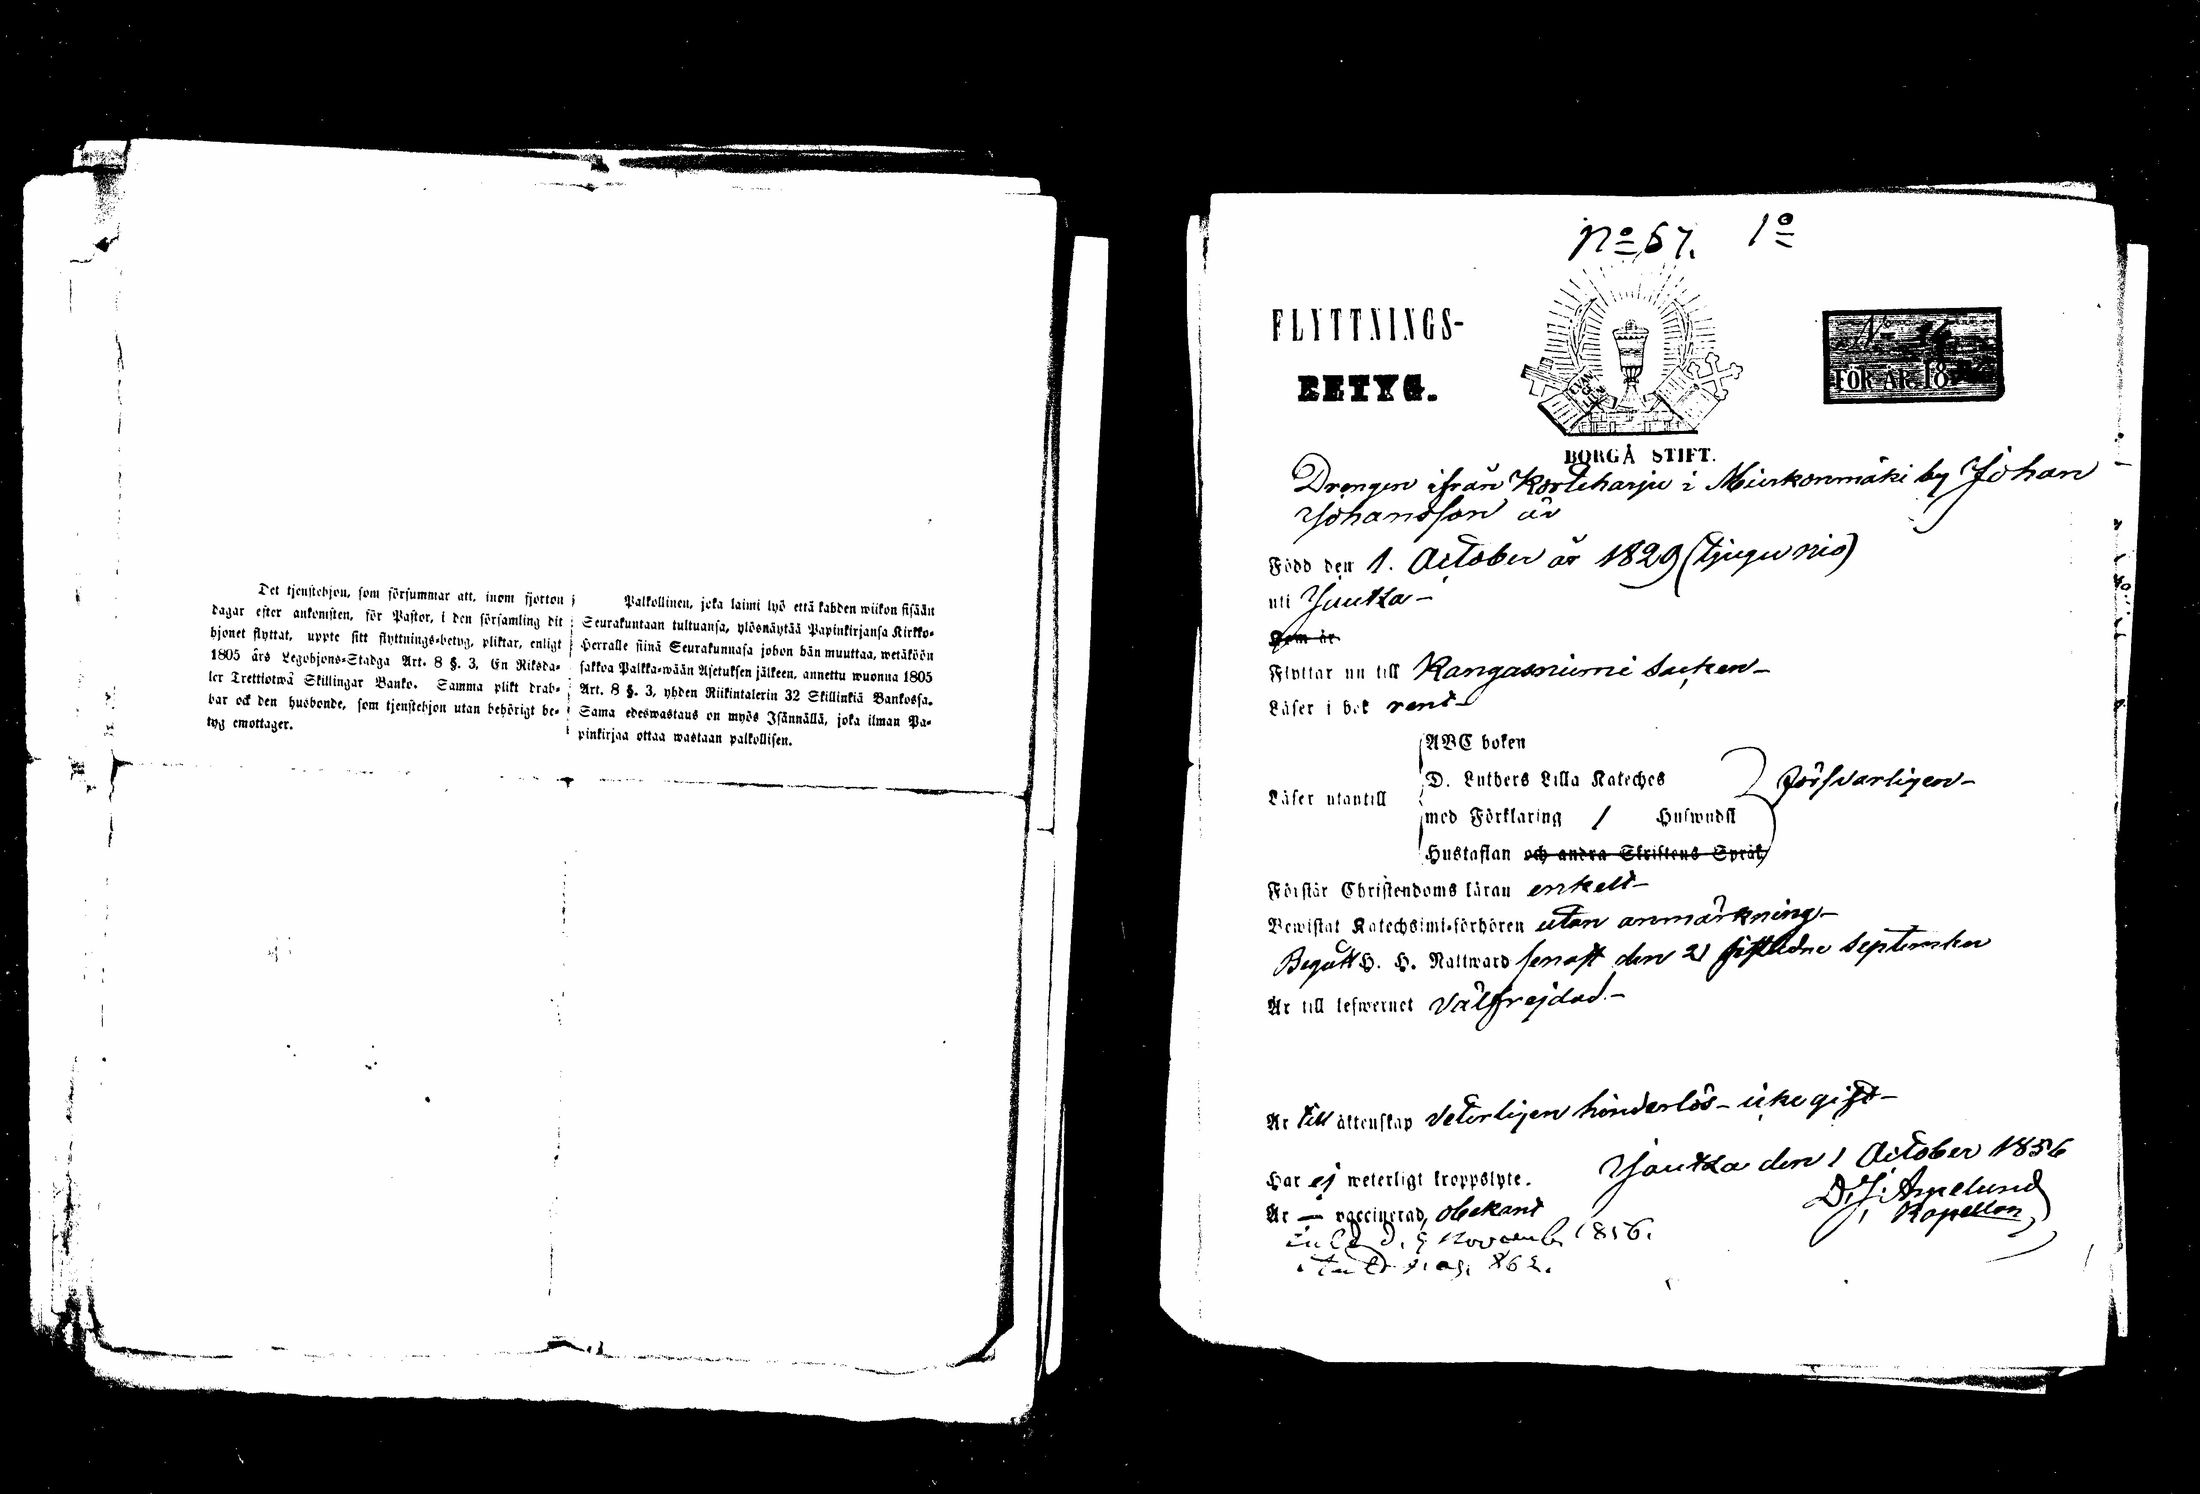 Det tjenstehjon, som försummar att, inom fjorton
dagar efter ankomsten, för Pastor, i den församling dit
hjonet flyttat, uppte sitt flyttnings-betyg, pliktar, enligt
1805 års Legohjons-Stadga Art. 8 §. 3, En Riksda-
ler Trettiotwå Skillingar Banko. Samma plikt drab-
bar ock den husbonde, som tjenstehjon utan behörigt be-
tyg emottager.
Palkollinen, joka laimi lyö että kahden wiikon sisään
Seurakuntaan tultuansa, ylösnäytää Papinkirjansa Kirkko-
Herralle siinä Seurakunnasa johon hän muuttaa, wetäköön
sakkoa Palkka-wään Asetuksen jälkeen, annettu wuonna 1805
Art. 8 §. 3, yhden Riikintalerin 32 Skillinkiä Bankossa.
Sama edeswastaus on myös Isännällä, joka ilman Pa-
pinkirjaa ottaa wastaan palkollisen.
No 67. 1o
FLYTTNINGS-
BETYG.
EVAN
GE
LIUM
No
FÖR ÅR 18
BORGÅ STIFT.
Drengen ifrån Korteharju i Mierkonmäki by Johan
Johansson är
Född den 1. October år 1829 (tjugu nio)
uti Jautsa –
Som är
Flyttar nu till Kangasniemi Socken –
Läser i bok rent –
ABC boken
D. Luthers Lilla Kateches
Läser utantill
försvarligen –
med Förklaring / Huswudst
Hustaflan och andra Skriftens Språk
Förstår Christendoms läran enkelt –
Bewistat Katechsimi-förhören utan anmärkning –
Begått H. H. Nattward senast den 21 sistledne September
Är till lefwernet välfrejdad. –
Är till äktenskap veterligen hinderlös – icke gift –
Jautsa den 1 October 1856
Har ej weterligt kroppslyte.
D. J. Amelund
Kapellan
Är — vaccinerad, obekant
d. 9 Novemb. 1856.
862.